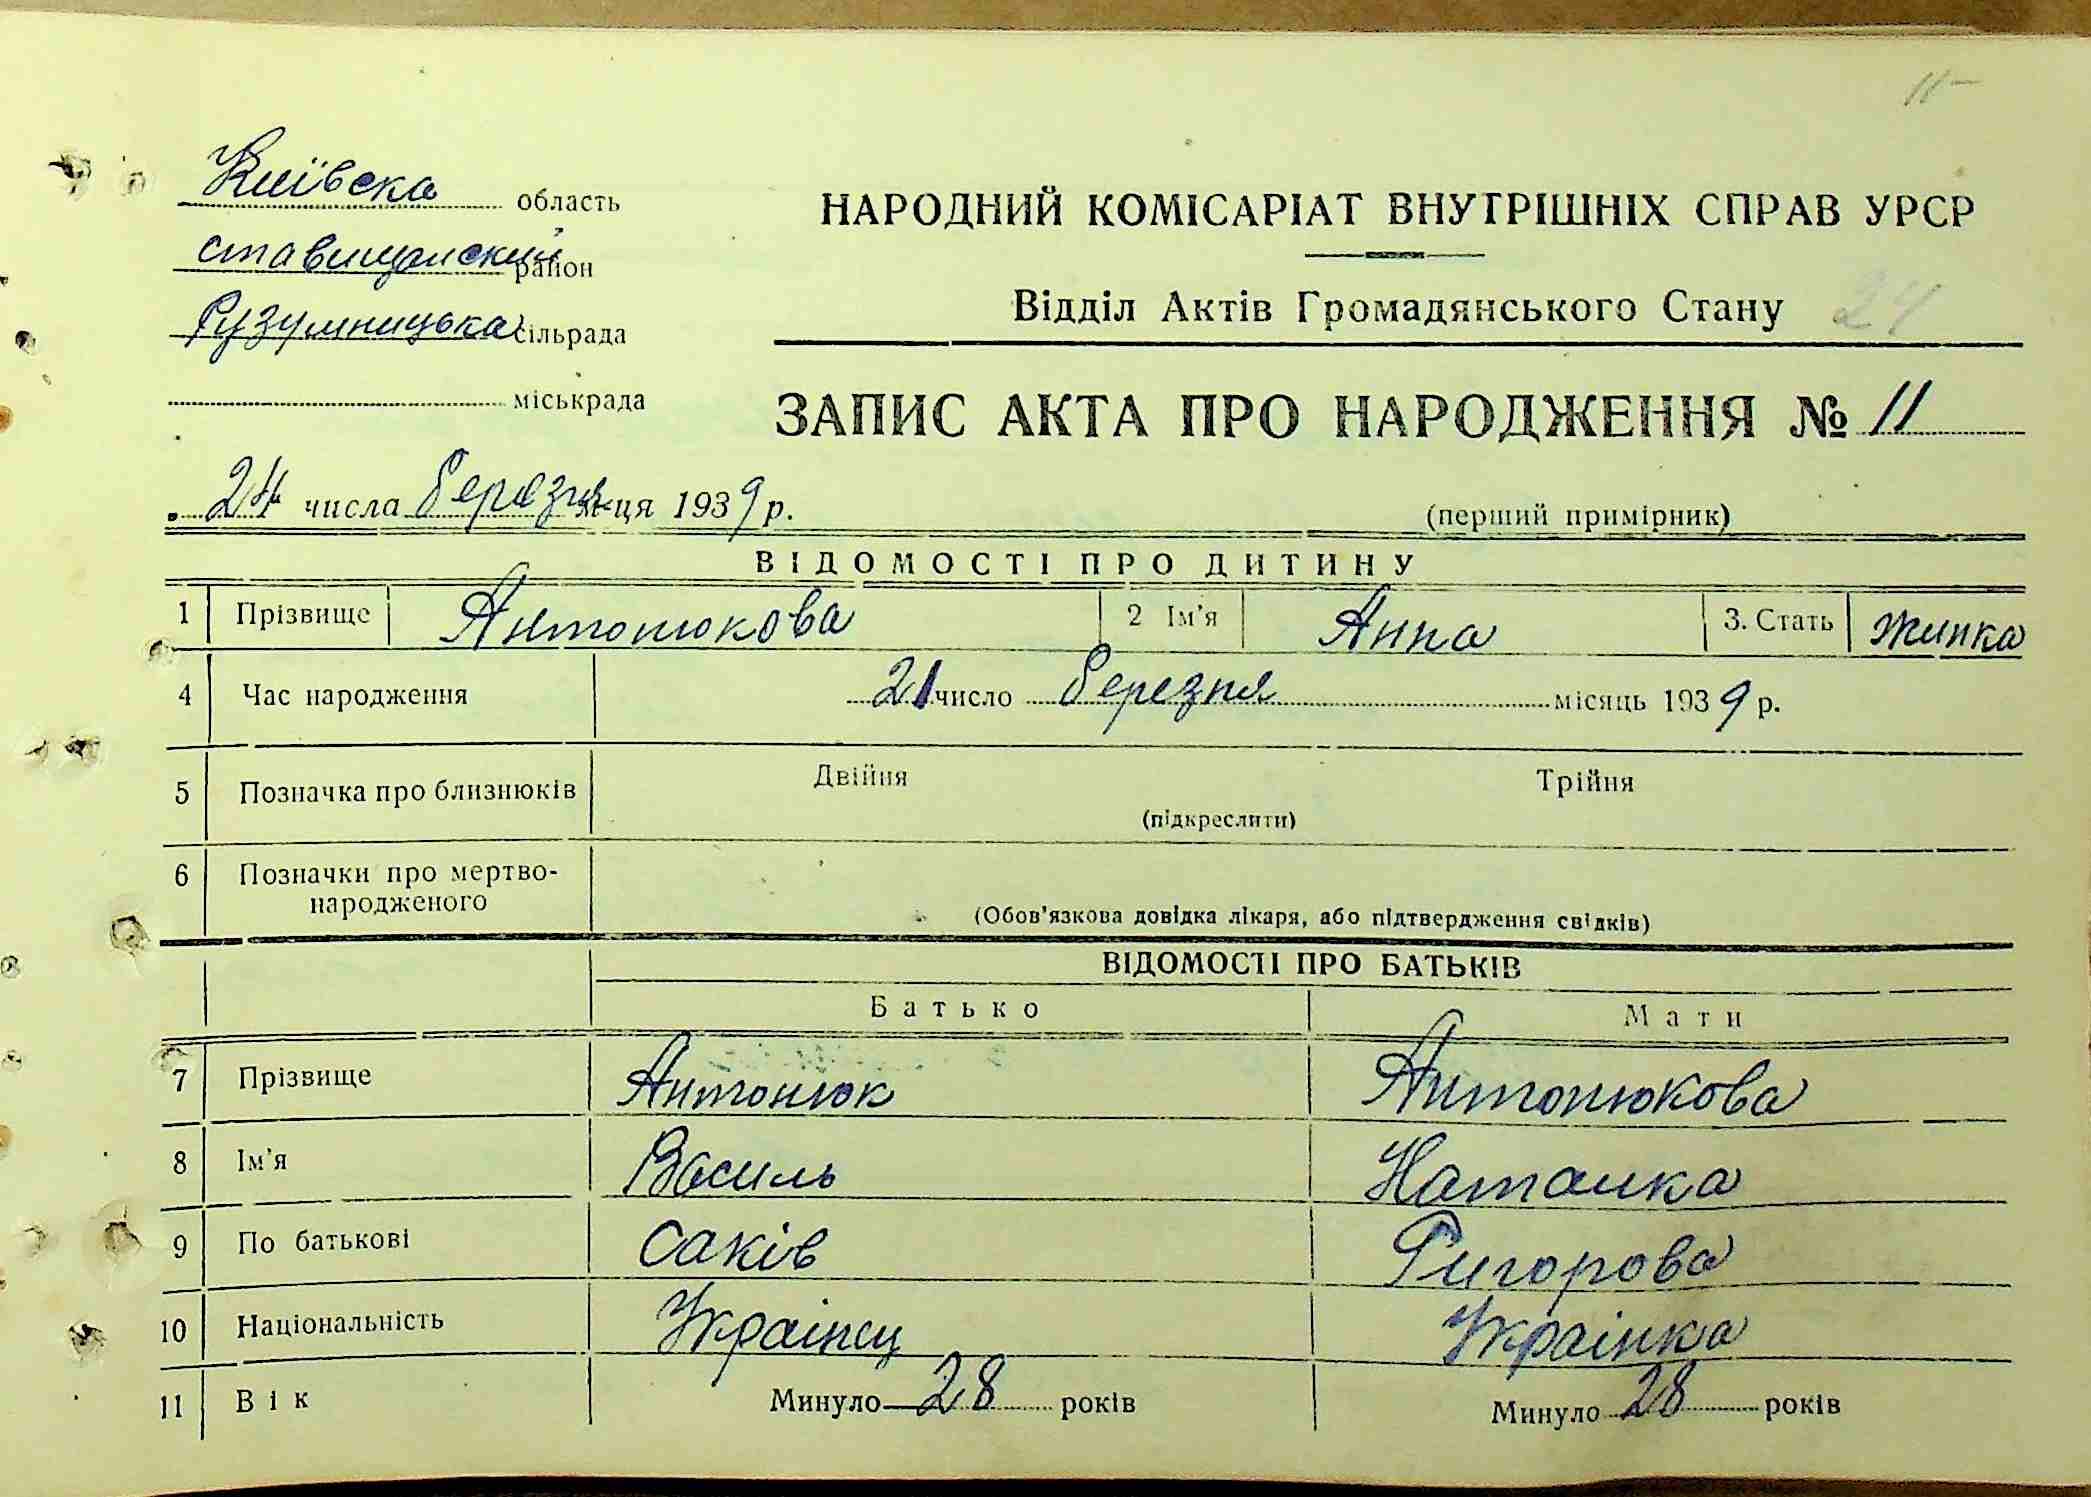 11
Київска область
ставищанский район
Рузумницька сільрада
міськрада
НАРОДНИЙ КОМІСАРІАТ ВНУТРІШНІХ СПРАВ УРСР
Відділ Актів Громадянського Стану 24
ЗАПИС АКТА ПРО НАРОДЖЕННЯ № 11
24 числа березня м-ця 1939 р.
(перший примірник)
ВІДОМОСТІ ПРО ДИТИНУ
1 Прізвище Антонюкова 2 Ім'я Анна 3. Стать жинка
4 Час народження 21 число березня місяць 1939 р.
5 Позначка про близнюків Двійня Трійня
(підкреслити)
6 Позначки про мертво-
народженого
(Обов'язкова довідка лікаря, або підтвердження свідків)
ВІДОМОСТІ ПРО БАТЬКІВ
Батько Мати
7 Прізвище Антонюк Антонюкова
8 Ім'я Василь Наталка
9 По батькові Саків Григорова
10 Національність Украінец Украінка
11 Вік Минуло 28 років Минуло 28 років